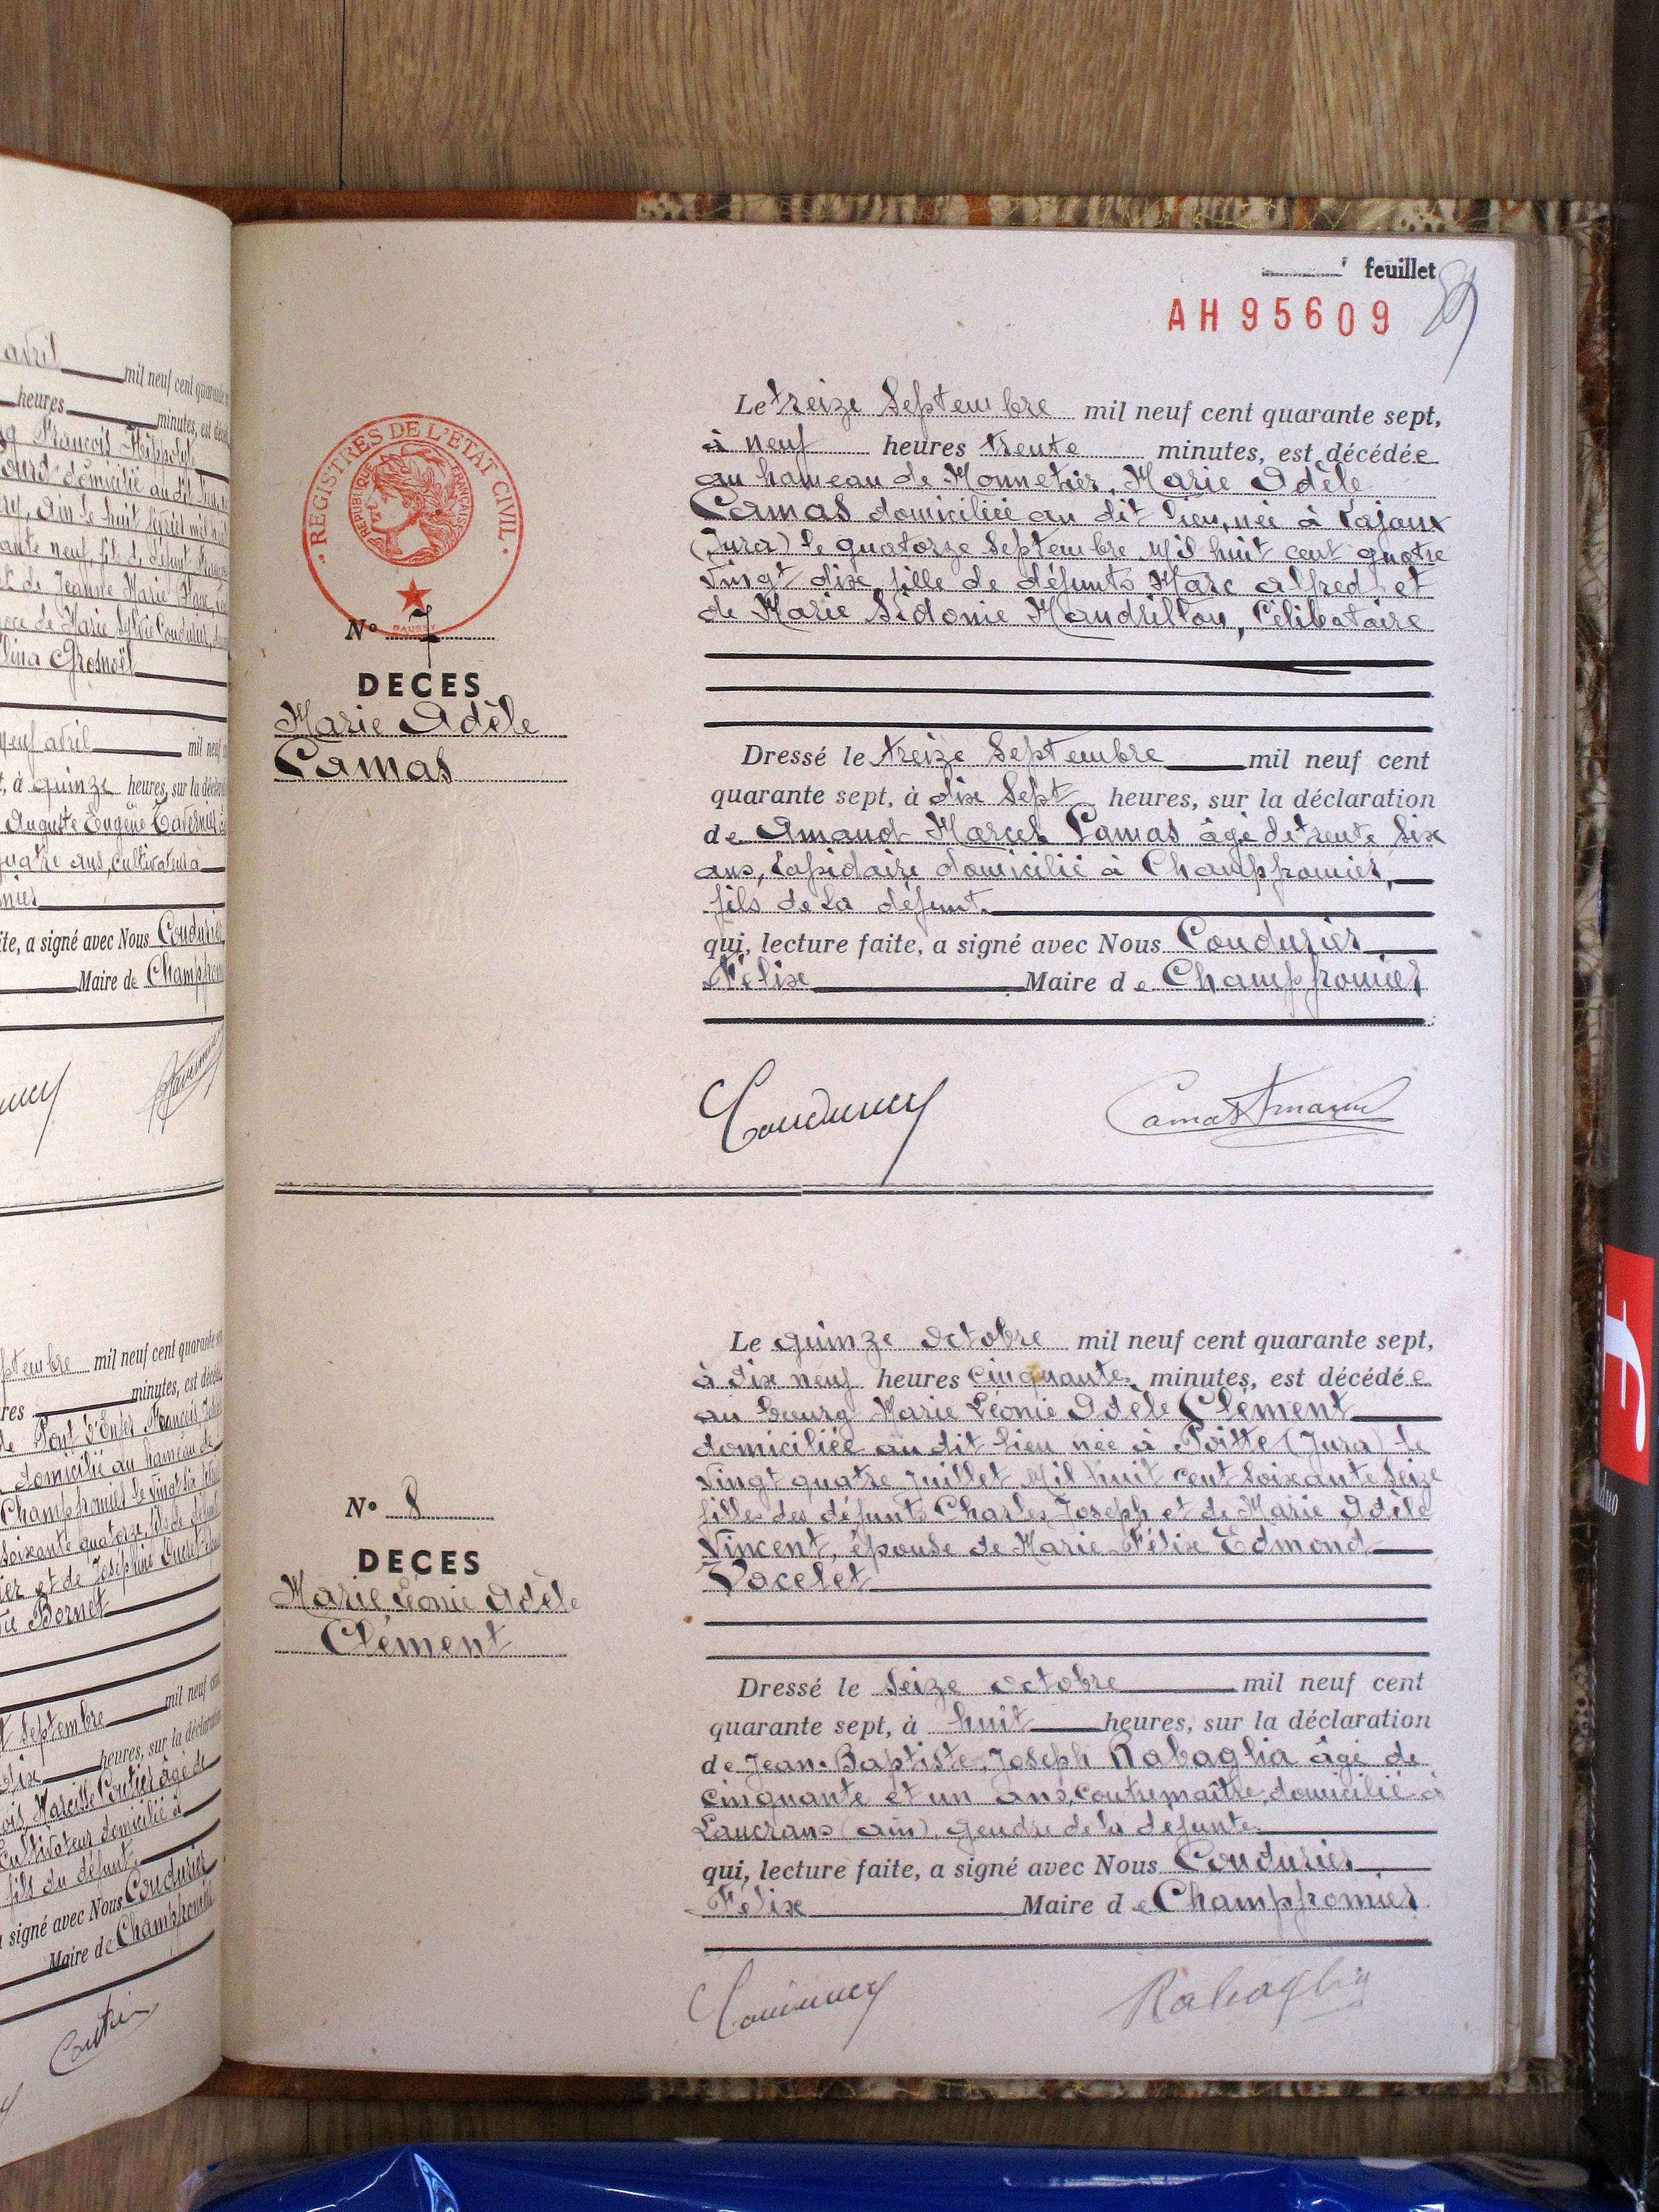 avril mil neuf cent quarante
heures minutes, est décédé
François Hippolyte
domicilié au dit lieu
Ain le huit février mil
neuf, fils de défunt
de Jeanne Marie
de Marie
Grosnoël
neuf avril mil neuf
à quinze heures, sur la déclaration
Auguste Eugène Tavernier
quatre ans, cultivateur à
faite, a signé avec Nous Coudurier
Maire de Champfromier
septembre mil neuf cent quarante
heures minutes, est décédé
Pont d'Enfer François
domicilié au hameau de
Champfromier le vingt six
soixante quatorze, fils de défunt
et de Joséphine Ducret
Bornet
Septembre mil neuf cent
dix heures, sur la déclaration
Marcille Coutier âgé de
cultivateur domicilié à
fils du défunt
signé avec Nous Coudurier
Maire de Champfromier
feuillet
AH 95609
REGISTRES DE L'ETAT CIVIL
REPUBLIQUE FRANÇAISE
DAUSSY
N° 7
DECES
Marie Adèle
Camas
Le treize Septembre mil neuf cent quarante sept,
à neuf heures trente minutes, est décédée
au hameau de Monnetier, Marie Adèle
Camas domiciliée au dit lieu, née à Lajoux
(Jura) le quatorze Septembre Mil huit cent quatre
vingt dix, fille de défunts Marc Alfred et
de Marie Sidonie Mandrillon, Célibataire
Dressé le treize Septembre mil neuf cent
quarante sept, à dix Sept heures, sur la déclaration
de Amand Marcel Camas âgé de trente six
ans, Lapidaire domicilié à Champfromier,
fils de La défunt.
qui, lecture faite, a signé avec Nous Coudurier
Félix Maire de Champfromier
Coudurier
Camas Amand
N° 8
DECES
Marie Léonie Adèle
Clément
Le quinze Octobre mil neuf cent quarante sept,
à dix neuf heures cinquante minutes, est décédée
au bourg Marie Léonie Adèle Clément
domiciliée au dit lieu née à Poitte (Jura) le
vingt quatre Juillet Mil huit cent soixante seize
fille des défunts Charles Joseph et de Marie Adèle
Vincent, épouse de Marie Félix Edmond
Vacelet
Dressé le seize octobre mil neuf cent
quarante sept, à huit heures, sur la déclaration
de Jean-Baptiste Joseph Rabaglia âgé de
cinquante et un ans, contremaître, domicilié à
Lancrans (ain), gendre de la défunte
qui, lecture faite, a signé avec Nous Coudurier
Félix Maire de Champfromier
Coudurier
Rabaglia